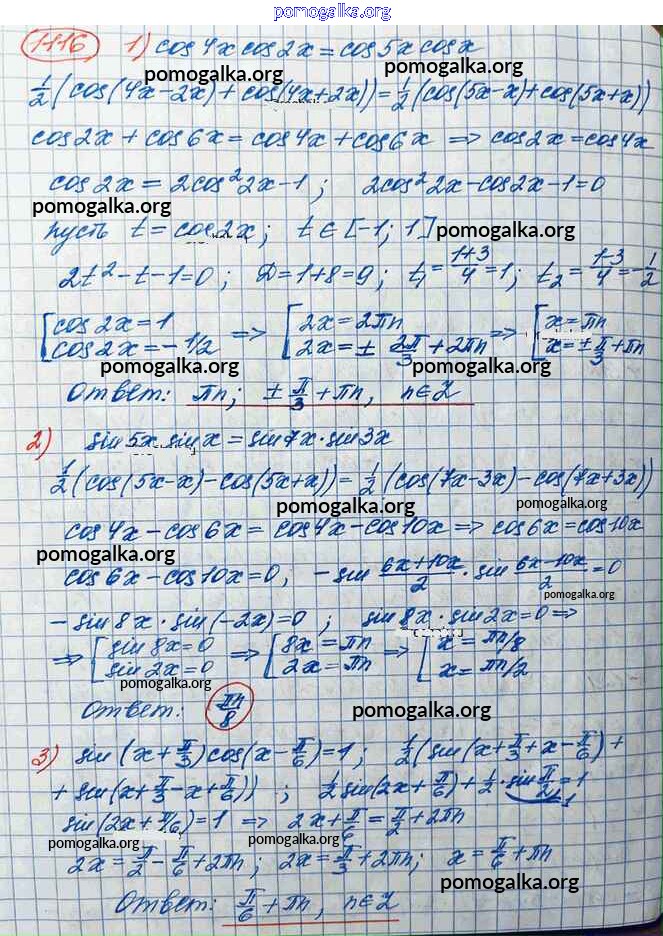 pomogalka.org
1116 1) cos4x cos2x = cos5x cosx
pomogalka.org
1/2 (cos(4x-2x) + cos(4x+2x)) = 1/2 (cos(5x-x) + cos(5x+x))
cos2x + cos6x = cos4x + cos6x => cos2x = cos4x
cos2x = 2cos²2x-1; 2cos²2x-cos2x-1=0
pomogalka.org
пусть t = cos2x; t ∈ [-1; 1]
pomogalka.org
2t²-t-1=0; D=1+8=9; t₁ = (1+3)/4 = 1; t₂ = (1-3)/4 = -1/2
[cos2x = 1 => [2x = 2πn => [x = πn
cos2x = -1/2 2x = ± 2π/3 + 2πn x = ± π/3 + πn
pomogalka.org pomogalka.org pomogalka.org
Ответ: πn; ± π/3 + πn, n∈Z
2) sin5x sinx = sin7x · sin3x
1/2 (cos(5x-x) - cos(5x+x)) = 1/2 (cos(7x-3x) - cos(7x+3x))
pomogalka.org pomogalka.org
cos4x - cos6x = cos4x - cos10x => cos6x = cos10x
pomogalka.org
cos6x - cos10x = 0; -sin (6x+10x)/2 · sin (6x-10x)/2 = 0
pomogalka.org
-sin8x · sin(-2x) = 0; sin8x · sin2x = 0 =>
=> [sin8x = 0 => [8x = πn => [x = πn/8
sin2x = 0 2x = πn x = πn/2
pomogalka.org
Ответ: πn/8
pomogalka.org
3) sin(x + π/3) cos(x - π/6) = 1; 1/2 (sin(x + π/3 + x - π/6) +
+ sin(x + π/3 - x + π/6)); 1/2 sin(2x + π/6) + 1/2 · sin π/2 = 1
sin(2x + π/6) = 1 => 2x + π/6 = π/2 + 2πn
pomogalka.org pomogalka.org
2x = π/2 - π/6 + 2πn; 2x = π/3 + 2πn; x = π/6 + πn
pomogalka.org
Ответ: π/6 + πn, n∈Z